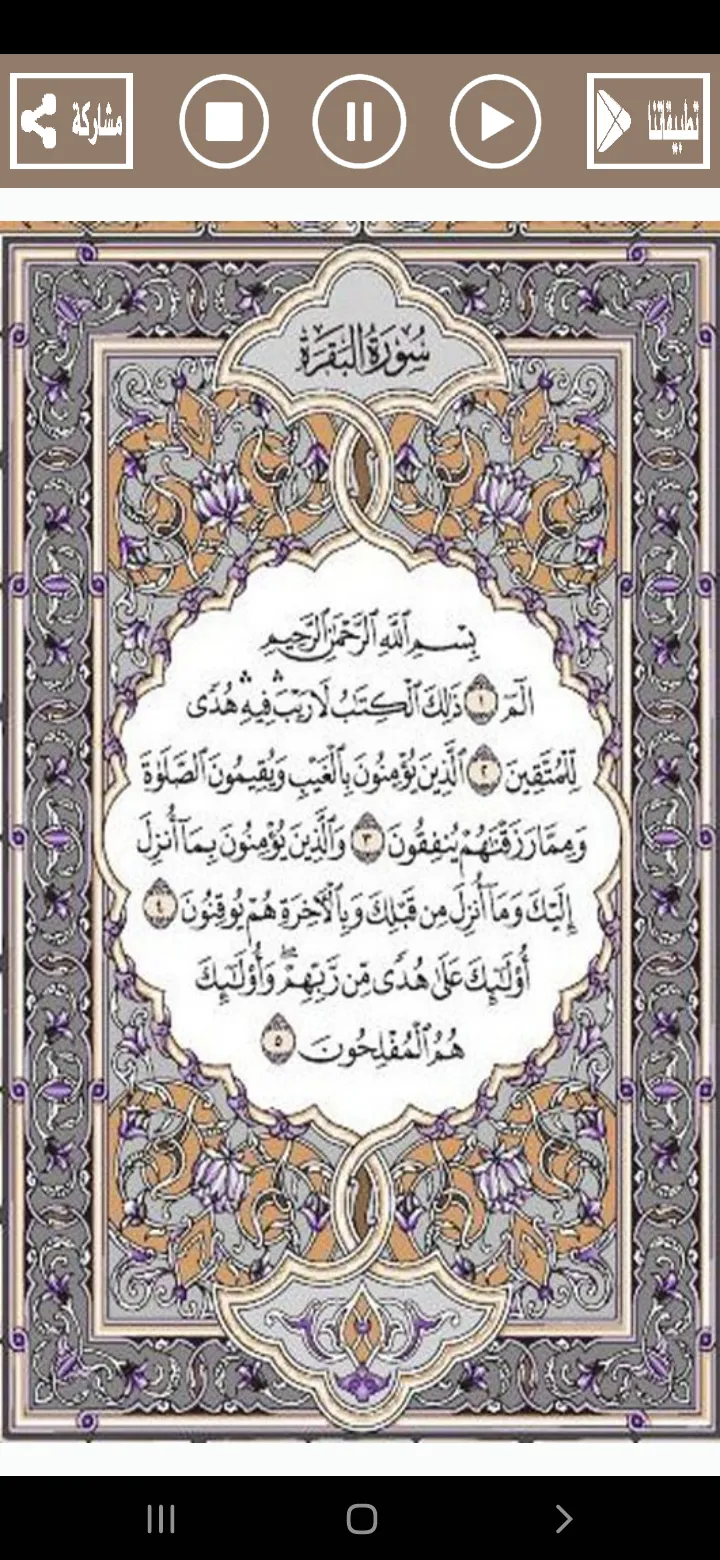 مشاركة
تطبيقاتنا
سُورَةُ البَقَرَةِ
بِسْمِ ٱللَّهِ ٱلرَّحْمَٰنِ ٱلرَّحِيمِ
الٓمٓ ١ ذَٰلِكَ ٱلْكِتَٰبُ لَا رَيْبَ ۛ فِيهِ ۛ هُدًى
لِّلْمُتَّقِينَ ٢ ٱلَّذِينَ يُؤْمِنُونَ بِٱلْغَيْبِ وَيُقِيمُونَ ٱلصَّلَوٰةَ
وَمِمَّا رَزَقْنَٰهُمْ يُنفِقُونَ ٣ وَٱلَّذِينَ يُؤْمِنُونَ بِمَآ أُنزِلَ
إِلَيْكَ وَمَآ أُنزِلَ مِن قَبْلِكَ وَبِٱلْءَاخِرَةِ هُمْ يُوقِنُونَ ٤
أُو۟لَٰٓئِكَ عَلَىٰ هُدًى مِّن رَّبِّهِمْ ۖ وَأُو۟لَٰٓئِكَ
هُمُ ٱلْمُفْلِحُونَ ٥